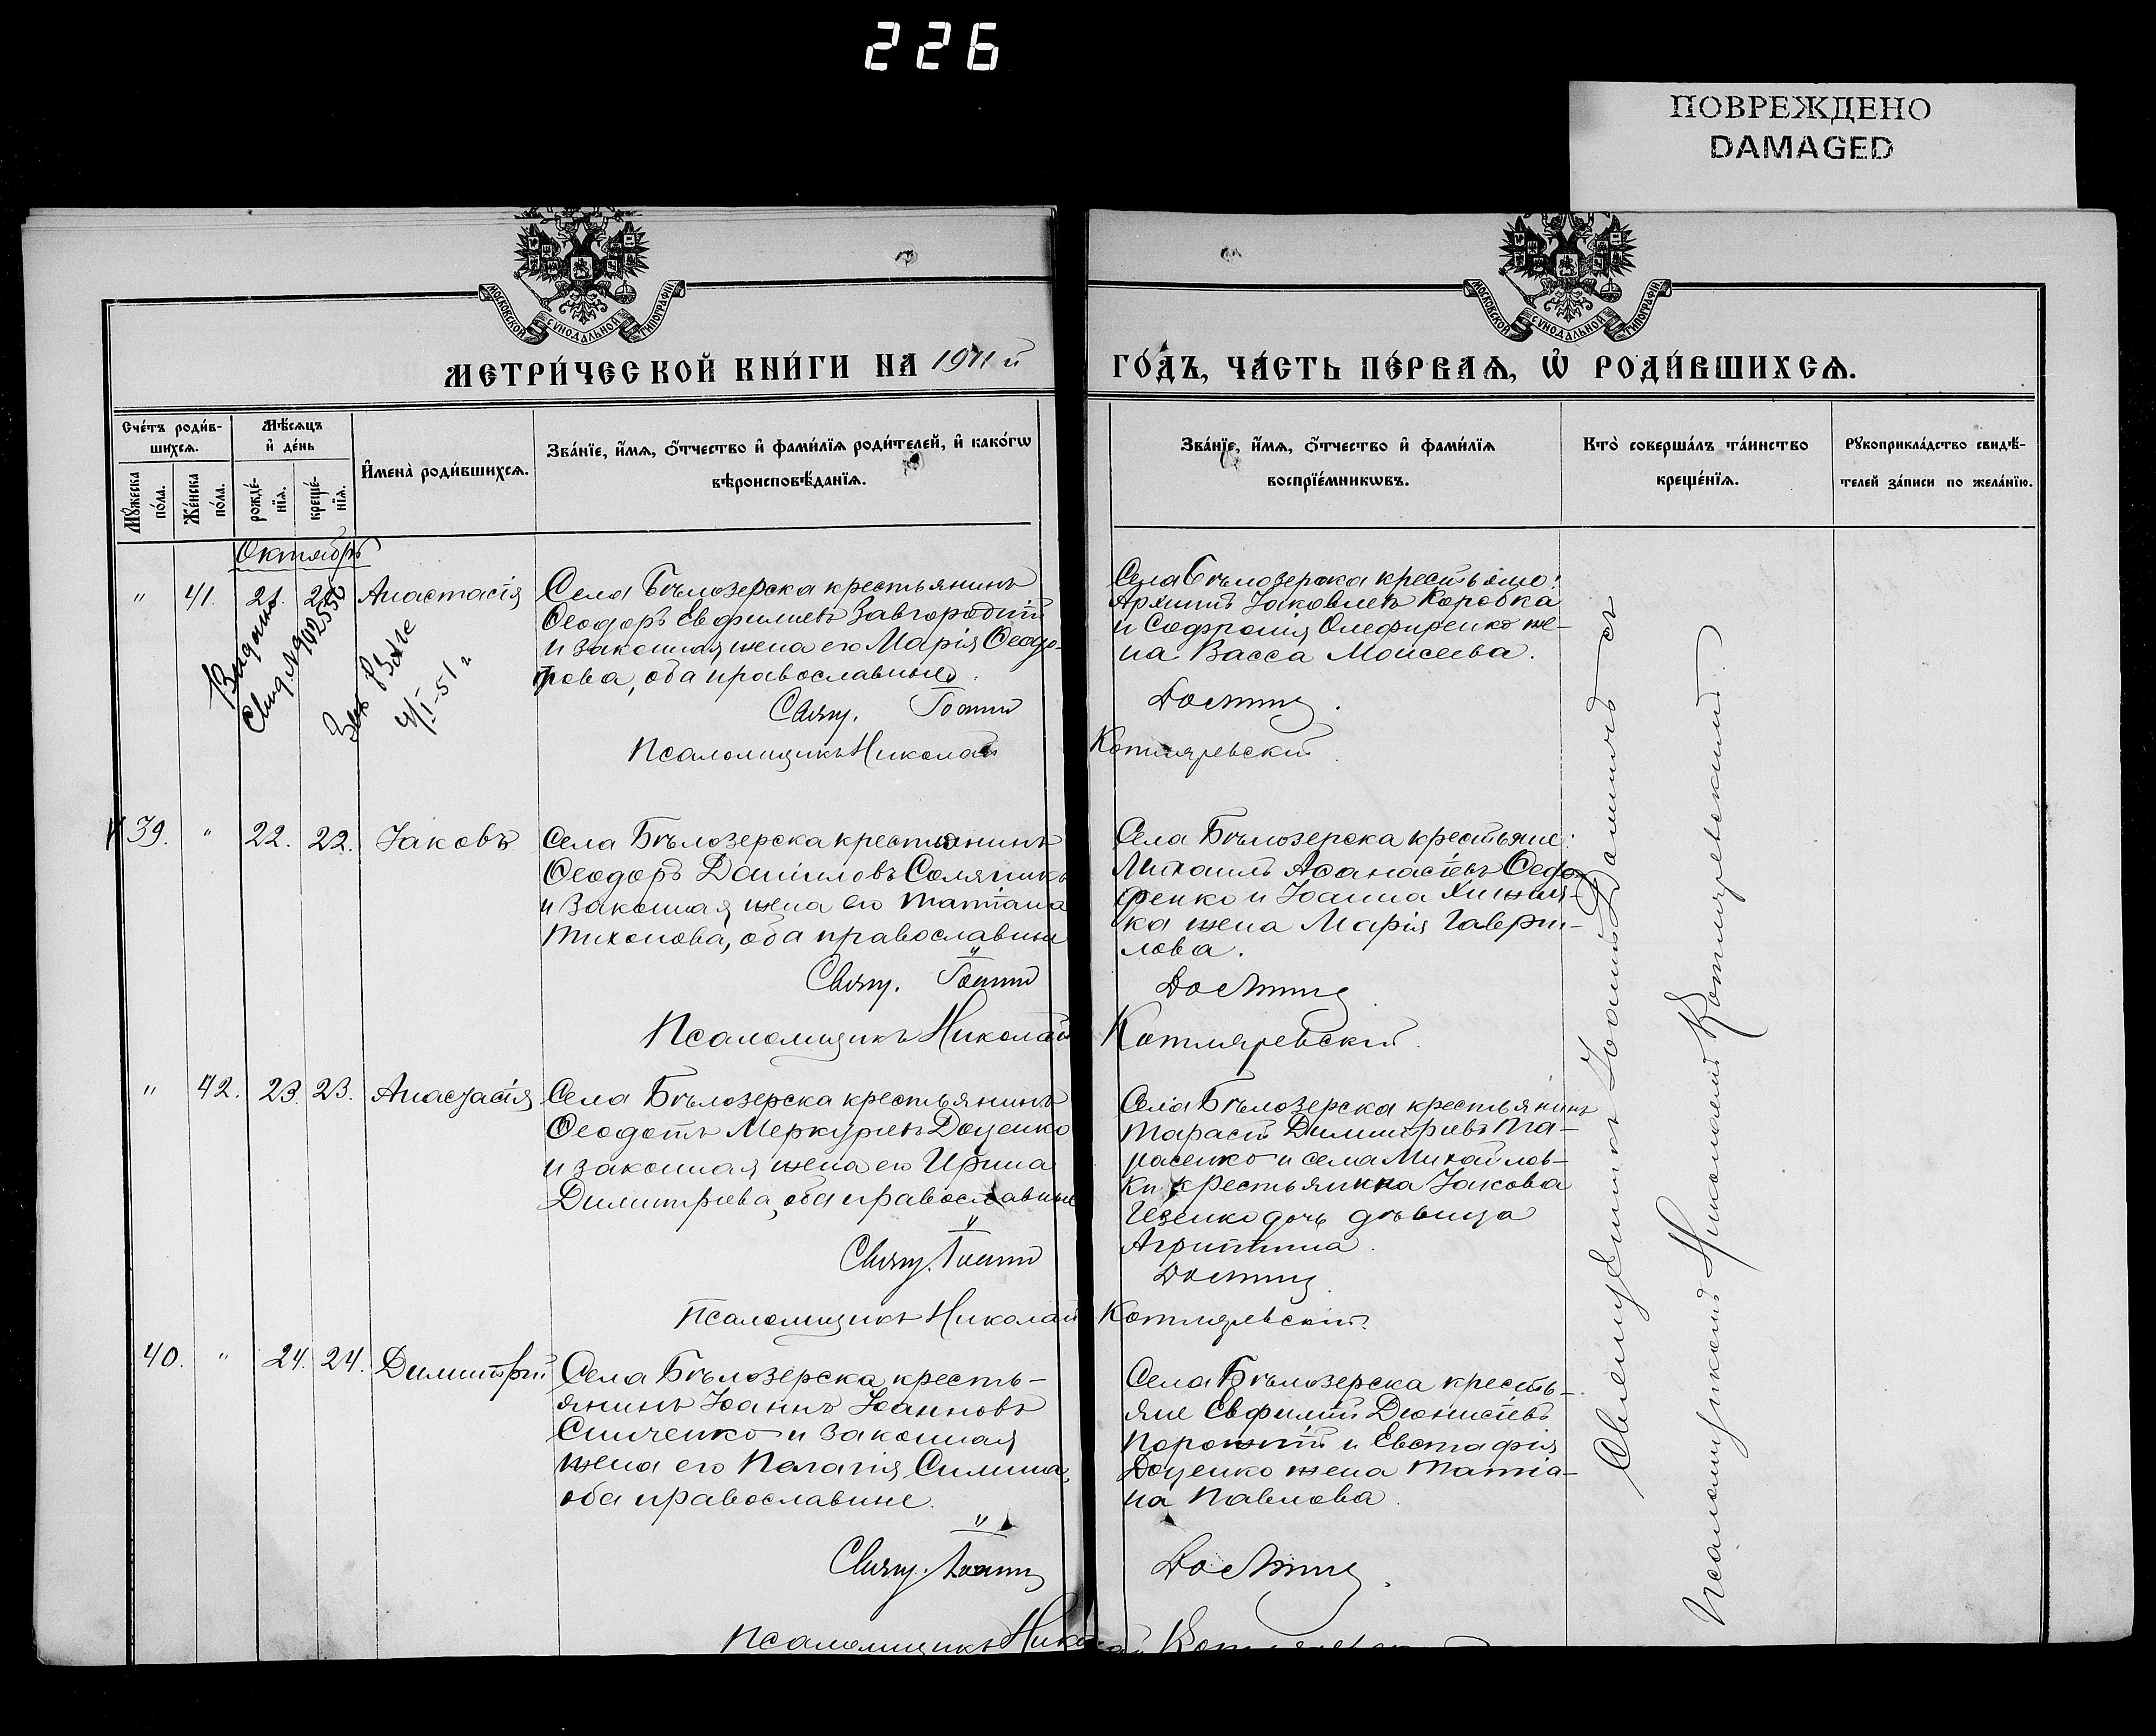 226
ПОВРЕЖДЕНО
DAMAGED
МОСКОВСКОЙ СѴНОДАЛЬНОЙ ТИПОГРАФІИ
МОСКОВСКОЙ СѴНОДАЛЬНОЙ ТИПОГРАФІИ
МЕТРИ́ЧЕСКОЙ КНИ́ГИ НА 1911 й
ГО́ДЪ, ЧА́СТЬ ПЕ́РВАѦ, Ѡ҆ РОДИ́ВШИХСѦ.
Сче́тъ роди́в-
шихсѧ.
Мꙋ́жеска
по́ла.
Же́нска
по́ла.
Мѣ́сѧцъ
и҆ де́нь
рожде́-
нїѧ.
креще́-
нїѧ.
И҆мена̀ роди́вшихсѧ.
Зва́нїе, и҆́мѧ, ѻ҆́тчество и҆ фами́лїѧ роди́телей, и҆ како́гѡ
вѣроисповѣ́данїѧ.
Зва́нїе, и҆́мѧ, ѻ҆́тчество и҆ фами́лїѧ
воспрїе́мникѡвъ.
Кто̀ соверша́лъ та́инство
креще́нїѧ.
Рꙋкоприкла́дство свидѣ́-
телей за́писи по жела́нїю.
Октябрь
" 41. 21. Анастасія
Села Бѣлозерска крестьянинъ
Ѳеодоръ Евфиміевъ Завгородній
и законная жена его Марія Ѳеодо-
рова, оба православные.
Свящ. Іоаннъ
Псаломщикъ Николай
Села Бѣлозерска крестьяне:
Архипъ Іаковлевъ Коробка
и Софронія Олефиренко же-
на Васса Моисеева.
Котляревскій
Видано
4/I-51 г
39. " 22. 22. Іаковъ
Села Бѣлозерска крестьянинъ
Ѳеодоръ Даніиловъ Соляникъ
и законная жена его Татіана
Тихонова, оба православные
Свящ. Іоаннъ
Псаломщикъ Николай
Села Бѣлозерска крестьяне:
Михаилъ Аѳанасіевъ Ѳедо-
ренко и Іоанна Хижня-
ка жена Марія Гаври-
лова.
Котляревскій.
" 42. 23. 23. Анастасія
Села Бѣлозерска крестьянинъ
Ѳеодотъ Меркуріевъ Доценко
и законная жена его Ирина
Димитріева, оба православные
Свящ. Іоаннъ
Псаломщикъ Николай
Села Бѣлозерска крестьянинъ
Тарасій Димитріевъ Та-
расенко и села Михайлов-
ки крестьянина Іакова
дочь дѣвица
Агриппина.
Котляревскій.
40. " 24. 24. Димитрій
Села Бѣлозерска кресть-
янинъ Іоаннъ Іоанновъ
Синченко и законная
жена его Пелагія Силина,
оба православные.
Свящ. Іоаннъ
Псаломщикъ
Села Бѣлозерска кресть-
яне Евфимій Діонисіевъ
Порожній и Евстафія
Доценко жена Татіа-
на Павлова.
Священникъ Іоаннъ
Псаломщикъ Николай Котляревскій.